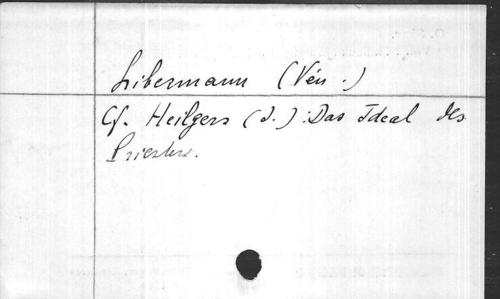 Libermann (Vén.)
Cf. Heilgers (J.) : Das Ideal des
Priesters.